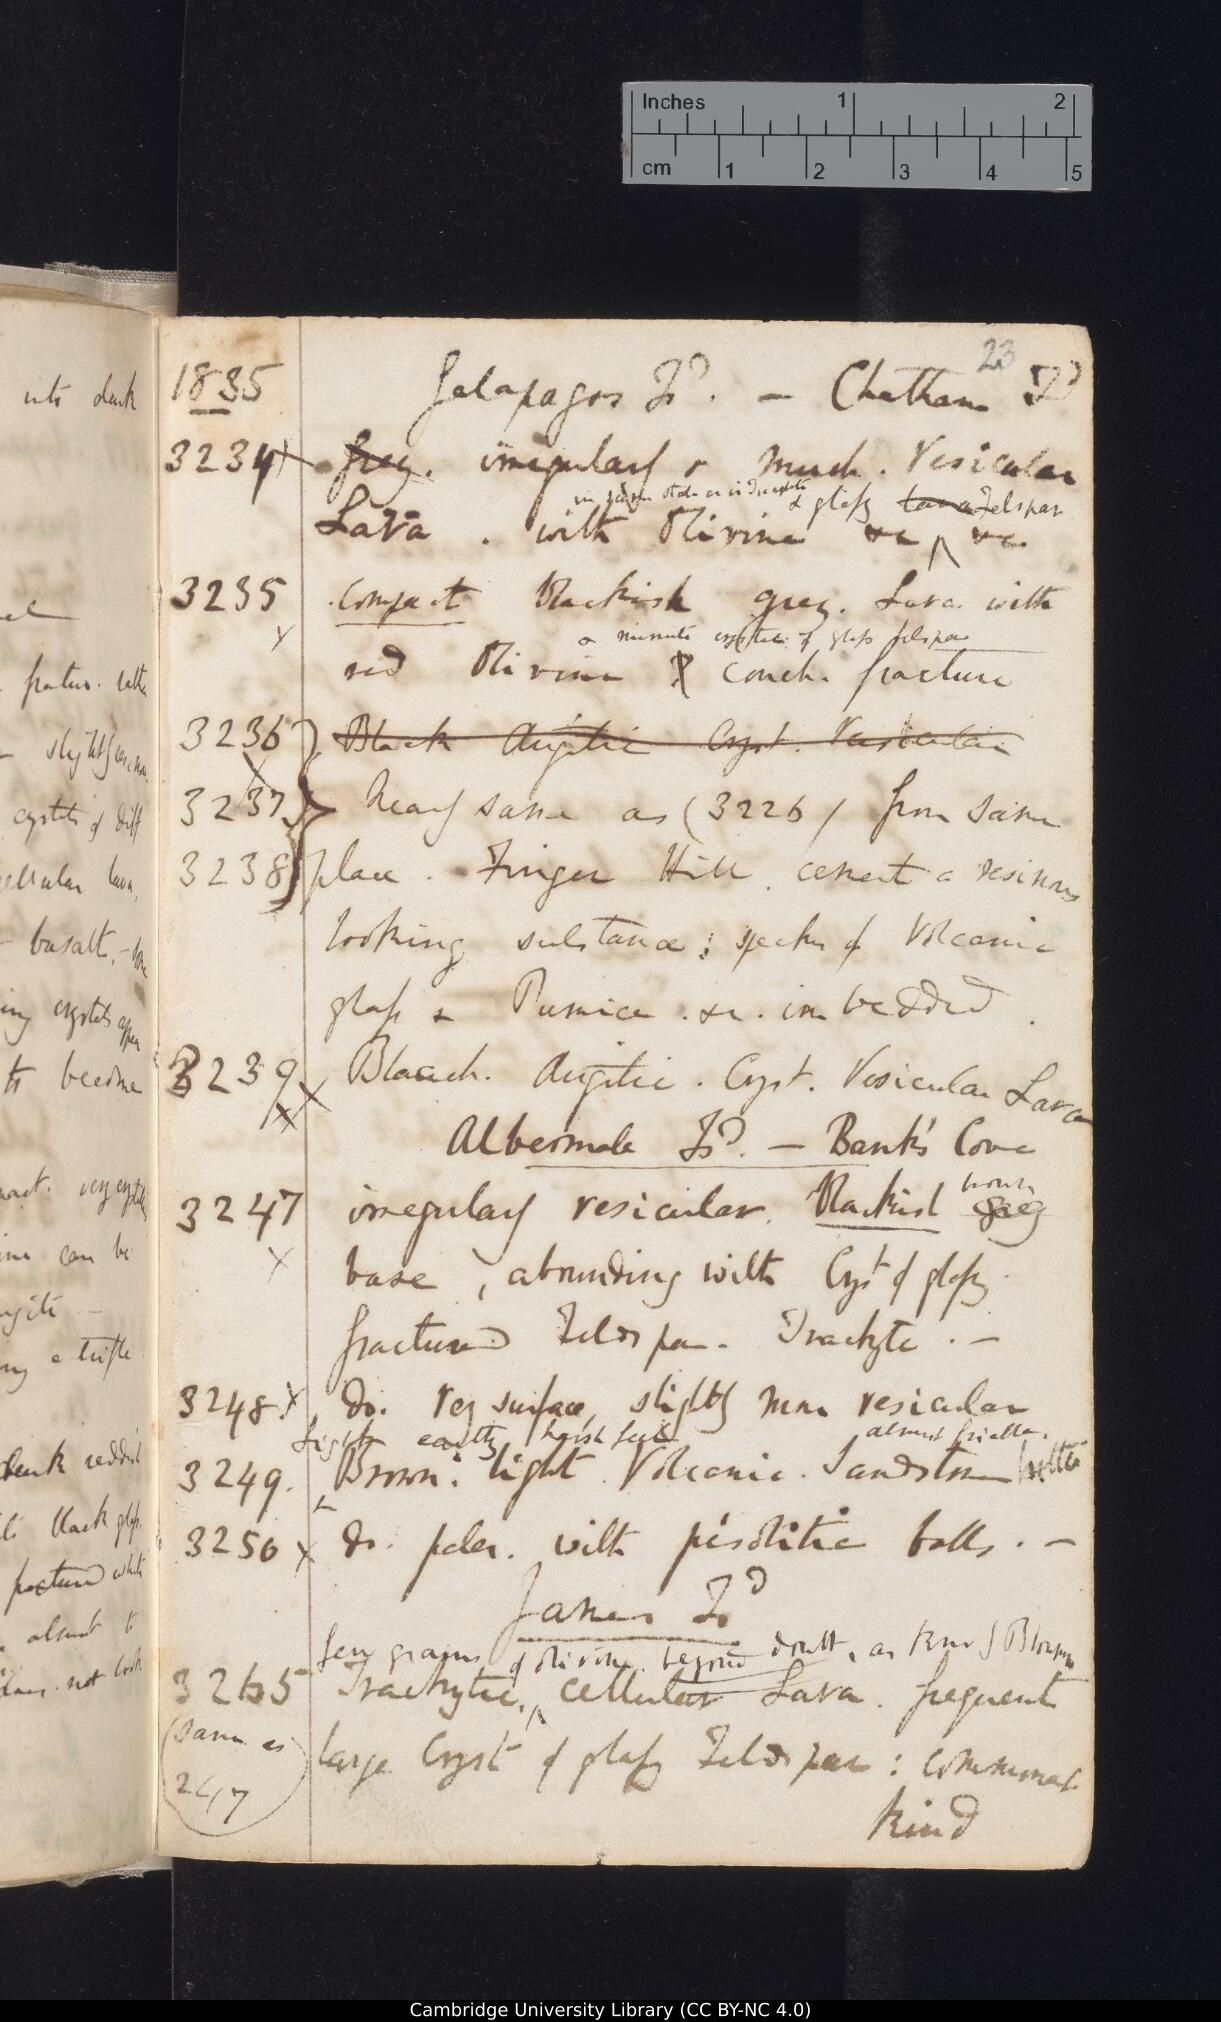 Inches 1 2
cm 1 2 3 4 5
23
1835 Galapagos Isd. — Chatham Isd
3234 Grey. irregularly & much. Vesicular
in same state as in
& glassy lava Felspar
Lava. with Olivine &c &c
3235 Compact Blackish grey. Lava with
& minute crystals of glass felspar
red Olivine & conch. fracture
3236 Black Augitic Cryst. Vesicular
3237 Nearly same as (3226) from same
3238 place. Finger Hill. cement a resinous
looking substance; specks of Volcanic
glass & Pumice. &c. imbedded.
3239 Black. Augitic. Cryst. Vesicular Lava
Albermale Isd. — Bank's Cove
brown
3247 irregularly vesicular. Blackish grey
base, abounding with Cryst of glassy
fractured Feldspar. Trachyte. —
3248. X do. reg surface, slightly more vesicular
light earthy harsh feel almost friable.
3249. Brown: light. Volcanic. Sandstone brittle
3250 X do. paler. with pisolitic balls. —
James Isd
few grains of olivine beyond doubt, as knows Blowpipe
3265 Trachytic, cellular Lava. frequent
(Same as large Cryst of glassy Feldspar: commonest
247) kind
into dark
fractur. with
crystals of diff
cellular lava,
basalt,
crystals
to become
can be
a trifle
dark reddish
black glass.
fractured white
almost to
not look
Cambridge University Library (CC BY-NC 4.0)